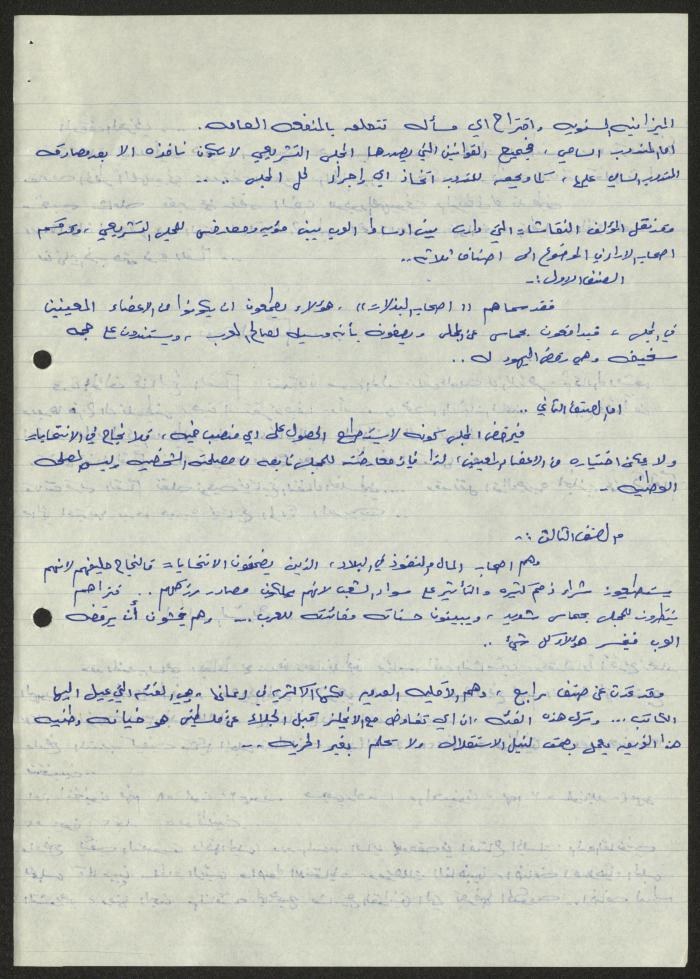 الميزانيه السنويه واقتراح اي مسأله تتعلق بالمنفعه العامه.
اما المندوب السامي، فجميع القوانين التي يصدرها المجلس التشريعي لا تكون نافذه الا بعد مصادقه
المندوب السامي عليها، كما ويحق للمندوب اتخاذ اي إجراء لحل المجلس ....
وقد نقل المؤلف النقاشات التي دارت بين اوساط العرب بين مؤيد ومعارض للمجلس التشريعي، وقد قسم
اصحاب الاراء في الموضوع الى اصناف ثلاثه..
الصنف الاول:-
فقد سماهم "اصحاب البذلات"، هؤلاء يطمعون ان يكونوا من الاعضاء المعينين
في المجلس، فيدافعون بحماس عن المجلس ويصفونه بأنه وسيله لصالح العرب، ويستندون على حجه
سخيفه وهي رفض اليهود له..
اما الصنف الثاني..
فيرفض المجلس كونه لا يستطيع الحصول على اي منصب فيه، فلا نجاح في الانتخابات
ولا يمكن اختياره من الاعضاء المعينين، لذا فإن معارضته للمجلس نابعه من مصلحته الشخصيه وليس المصلحه
الوطنيه..
والصنف الثالث:-
وهم اصحاب المال والنفوذ في البلاد، الذين يضمنون الانتخابات فالنجاح حليفهم لانهم
يستطيعون شراء ذمم كثيره والتأثير على سواد الشعب لانهم يملكون مصادر رزقهم.. فتراهم
ينظرون للمجلس بحماس شديد، ويبينون حسناته وفائدته للعرب... وهم يخشون أن يرفضه
العرب فيخسر هؤلاء كل شيء..
وقد تحدث عن صنف رابع، وهم الاقليه العدديه ولكنها الاكثريه في ايمانها، وهي الفئه التي يميل اليها
الكاتب... وترى هذه الفئه، ان اي تفاوض مع الانجليز قبل الجلاء عن فلسطين هو خيانه وطنيه
هذا الفريق يعمل بصمت لنيل الاستقلال ولا تحلم بغير الحريه...